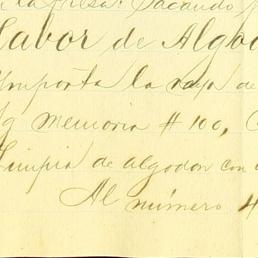 la Presa: Sacando
Labor de Algod
Importa la raya de
Sg memoria # 100,
Limpia de algodon con
Al número 4